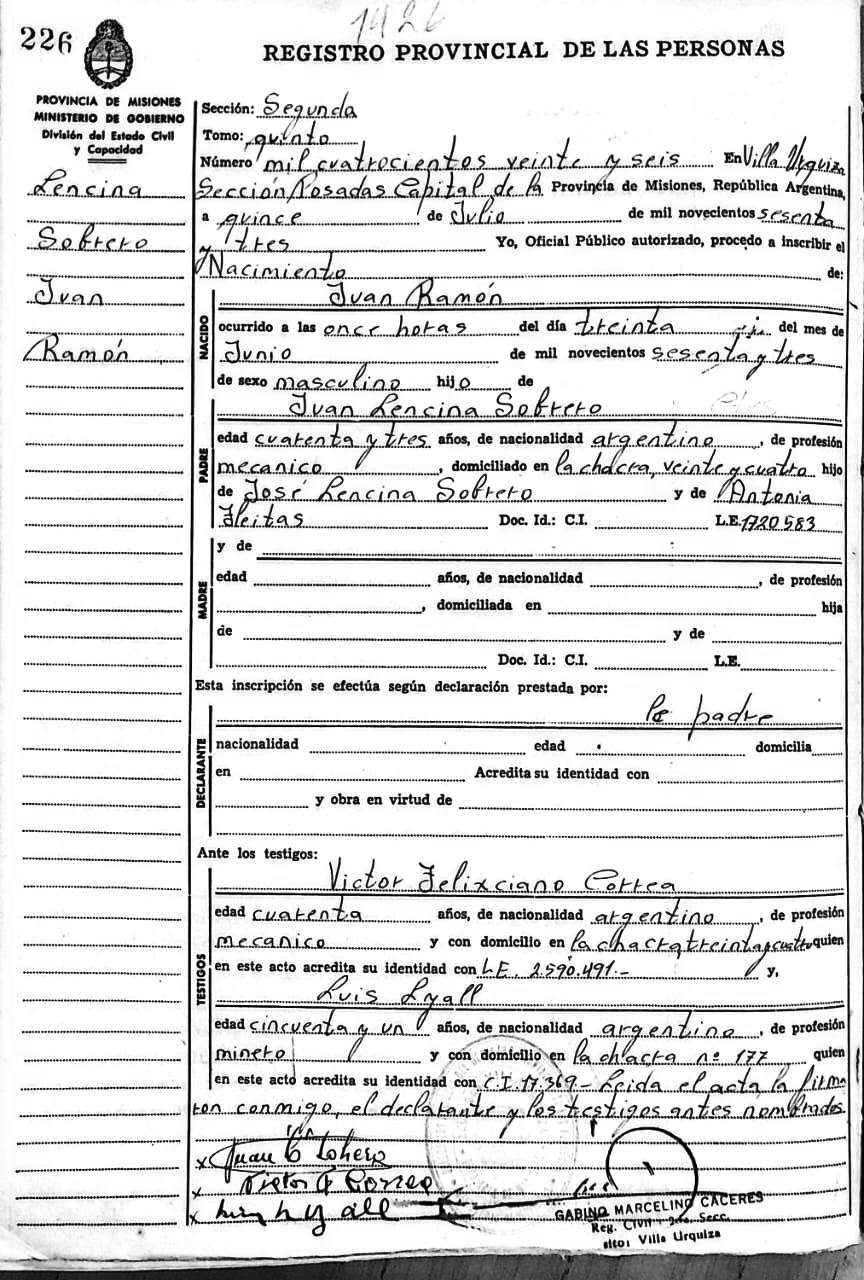 1426
226
REGISTRO PROVINCIAL DE LAS PERSONAS
PROVINCIA DE MISIONES
MINISTERIO DE GOBIERNO
División del Estado Civil
y Capacidad
Lencina
Sobrero
Juan
Ramón
Sección: Segunda
Tomo: quinto
Número mil cuatrocientos veinte y seis En Villa Urquiza
Sección Posadas Capital de la Provincia de Misiones, República Argentina,
a quince de Julio de mil novecientos sesenta
y tres Yo, Oficial Público autorizado, procedo a inscribir el
Nacimiento de:
NACIDO
Juan Ramón
ocurrido a las once horas del día treinta del mes de
Junio de mil novecientos sesenta y tres
de sexo masculino hijo de
PADRE
Juan Lencina Sobrero
edad cuarenta y tres años, de nacionalidad argentino, de profesión
mecanico, domiciliado en la chacra, veinte y cuatro hijo
de José Lencina Sobrero y de Antonia
Fleitas Doc. Id.: C.I. L.E. 1720583
MADRE
y de
edad años, de nacionalidad , de profesión
, domiciliada en hija
de y de
Doc. Id.: C.I. L.E.
Esta inscripción se efectúa según declaración prestada por:
DECLARANTE
padre
nacionalidad edad domicilia
en Acredita su identidad con
y obra en virtud de
Ante los testigos:
TESTIGOS
Victor Felixciano Correa
edad cuarenta años, de nacionalidad argentino, de profesión
mecanico y con domicilio en la chacra treinta y cuatro quien
en este acto acredita su identidad con L.E. 2.590.491.- y,
Luis Lyall
edad cincuenta y un años, de nacionalidad argentino, de profesión
minero y con domicilio en la chacra nº 177 quien
en este acto acredita su identidad con C.I. 17.369 - Leida el acta la firma
ron conmigo, el declarante y los testigos antes nombrados
x Juan
x Victor F Correa
x Luis Lyall
GABINO MARCELINO CACERES
Reg. Civil - 2da. Secc.
sito: Villa Urquiza